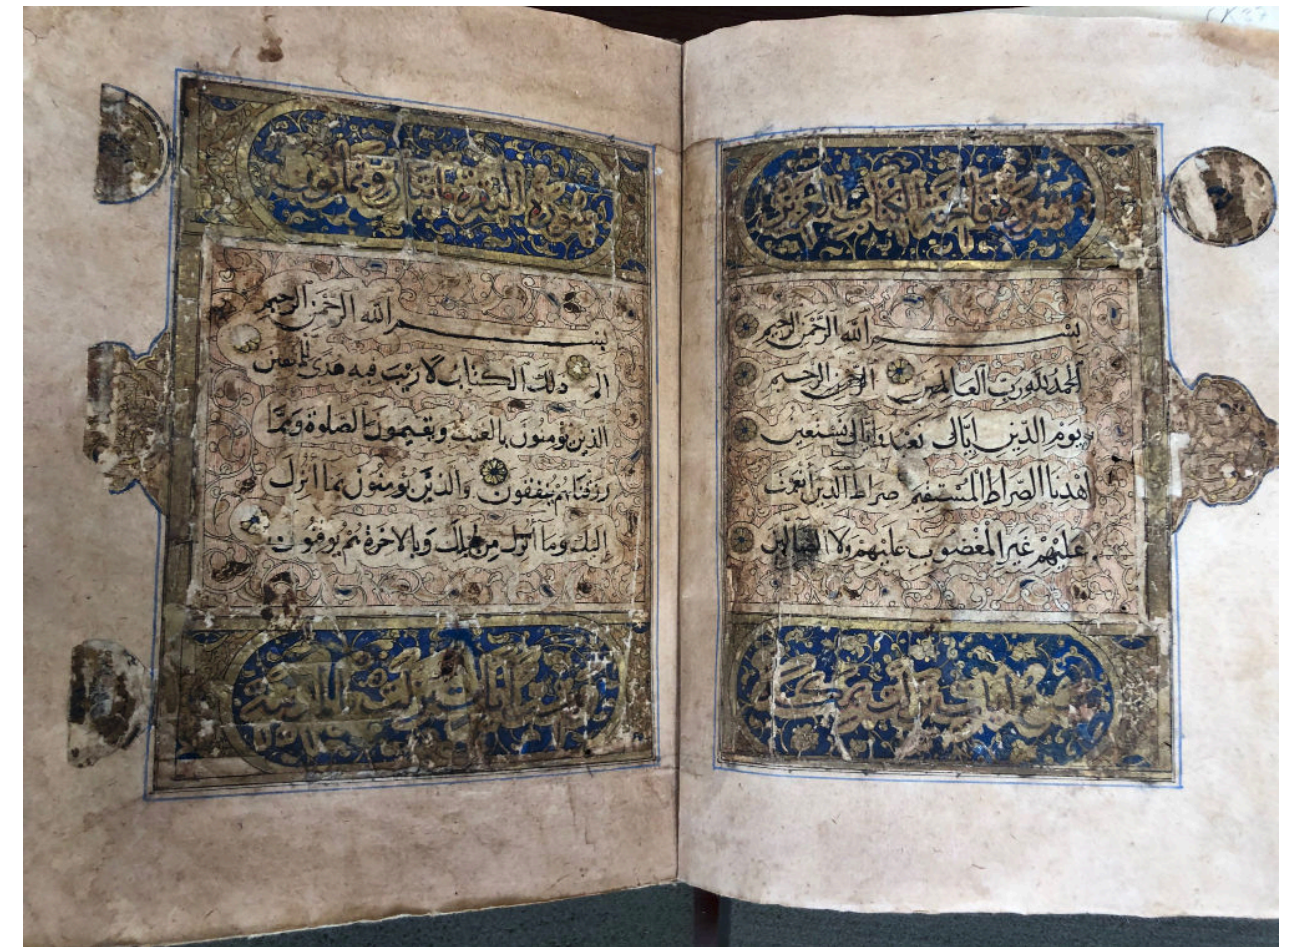 سورة فاتحة الكتاب العزيز
بسم الله الرحمن الرحيم
الحمد لله رب العالمين الرحمن الرحيم
يوم الدين اياك نعبد واياك نستعين
اهدنا الصراط المستقيم صراط الذين أنعمت
عليهم غير المغضوب عليهم ولا الضالين
سبع ايات نزلت بمكة
سورة البقرة مائتان وثمانون
بسم الله الرحمن الرحيم
الم ذلك الكتاب لا ريب فيه هدى للمتقين
الذين يؤمنون بالغيب ويقيمون الصلوة ومما
رزقناهم ينفقون والذين يؤمنون بما انزل
اليك وما انزل من قبلك وبالاخرة هم يوقنون
ايات نزلت